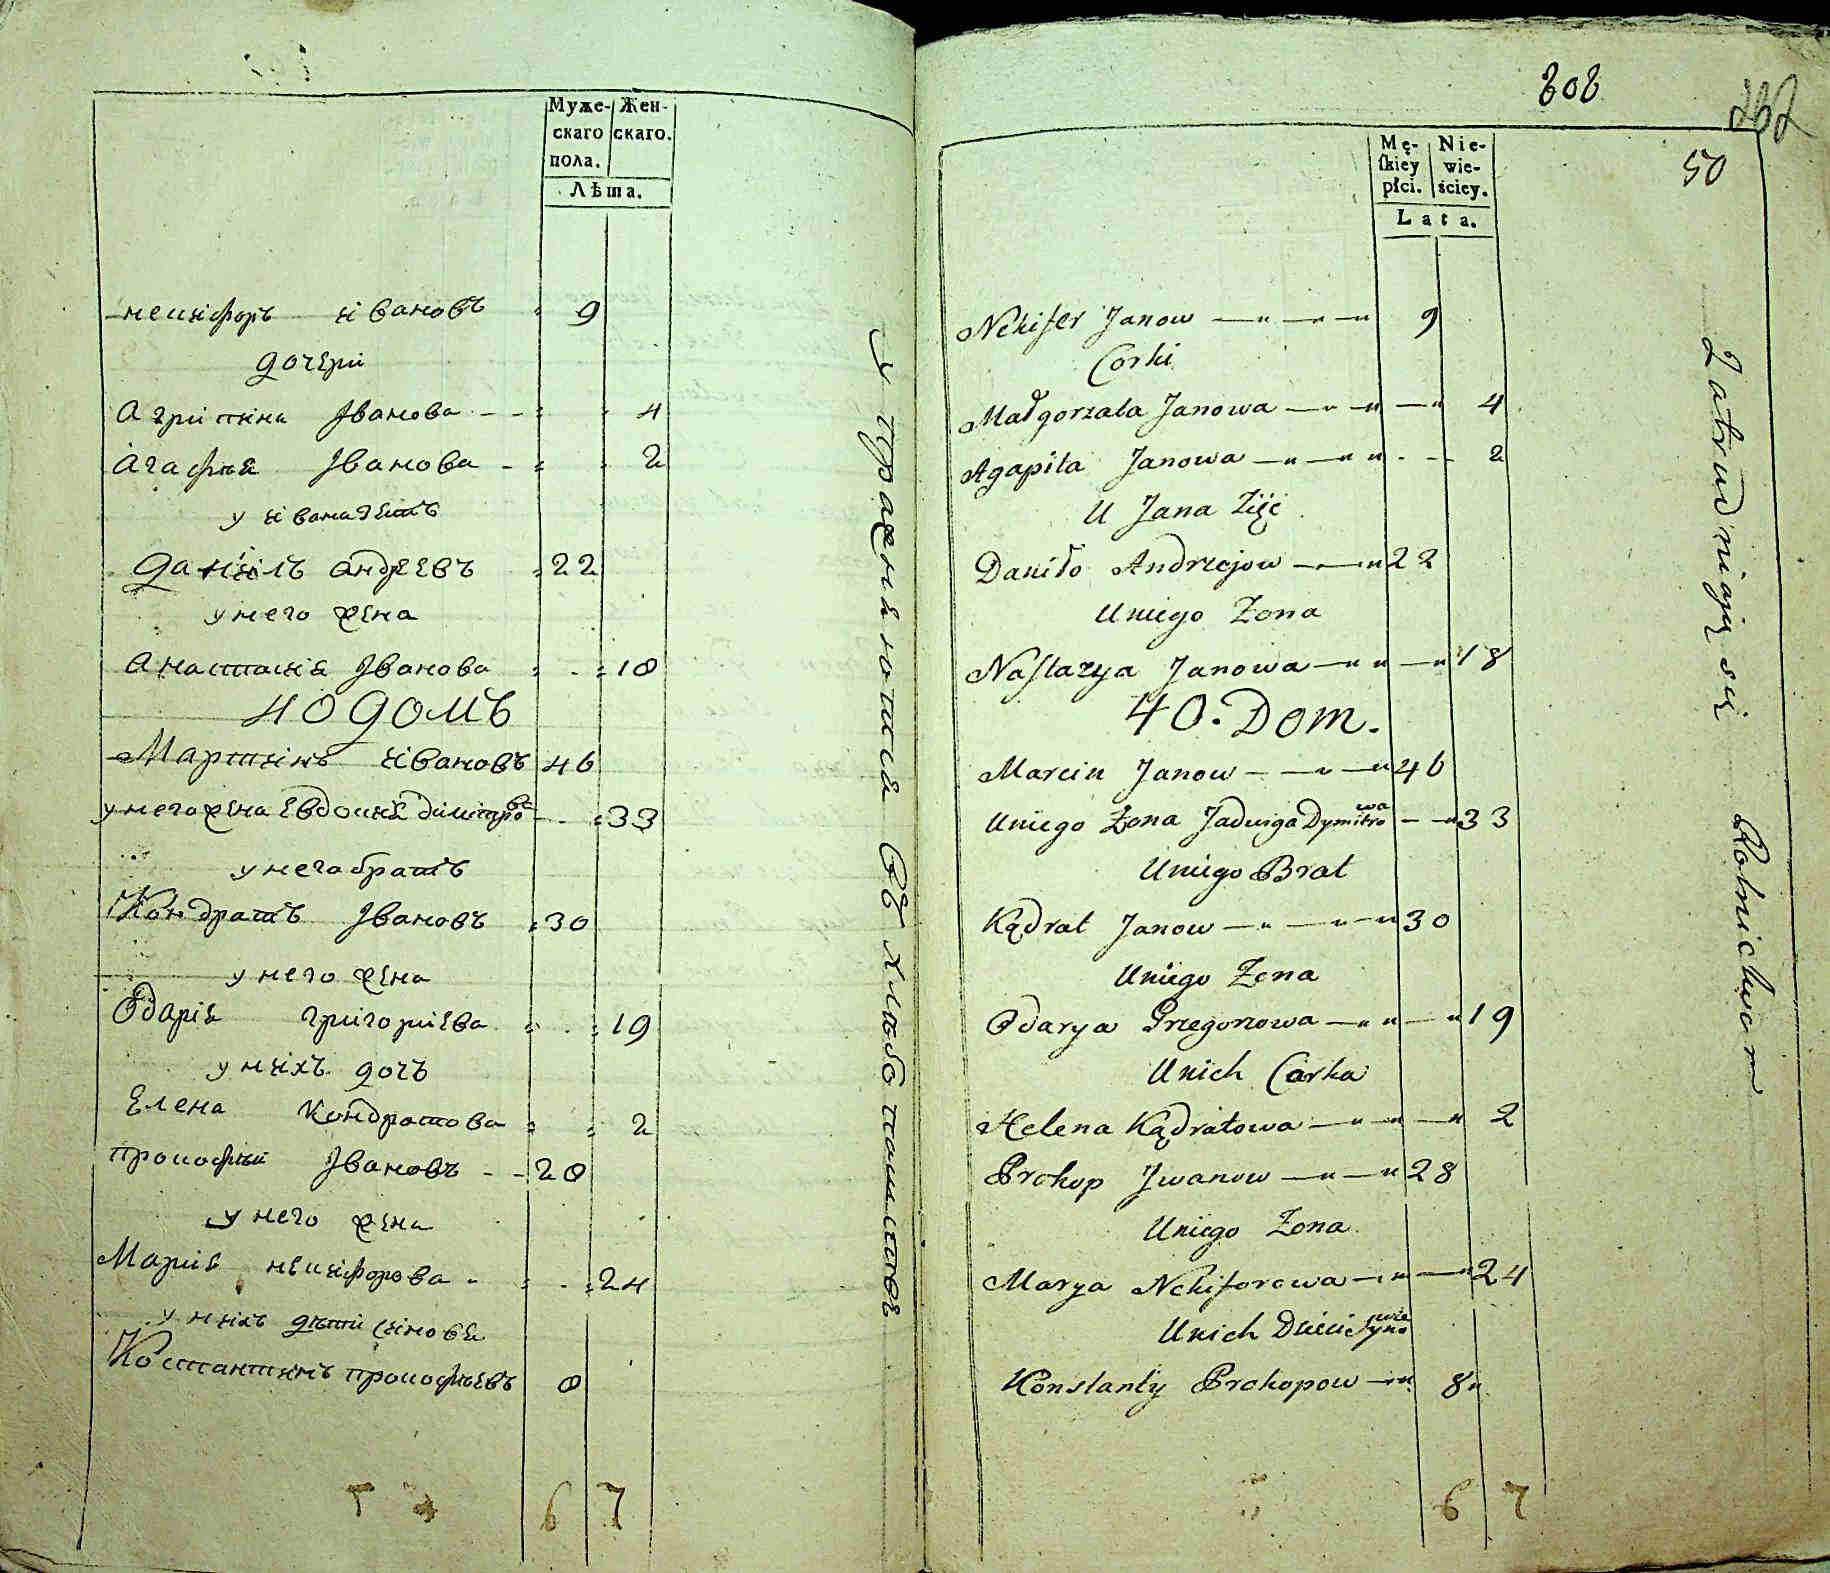 Муже-
скаго
пола.
Жен-
скаго.
Лѣта.
некифоръ ивановъ 9
дочери
Агрипина Иванова 4
Агафия Иванова 2
у ивана зять
Данiилъ андреевъ 22
у него жена
Анастасия Иванова 18
40 домъ
Мартинъ ивановъ 46
у него жена евдокия димитрова 33
у него братъ
Кондратъ Ивановъ 30
у него жена
Одария григориева 19
у нихъ дочь
Елена Кондратова 2
прокофий Ивановъ 28
у него жена
Мария никифорова 24
у нихъ дѣти синовя
Костантинъ прокофиевъ 8
6 7
упражняются въ хлебопашстве
808
262
50
Mę-
ſkiey
płci.
Nie-
wie-
ściey.
Lata.
Nekifer Janow 9
Corki
Małgorzata Janowa 4
Agapita Janowa 2
U Jana Zięć
Daniło Andrzejow 22
Uniego Zona
Naſtazya Janowa 18
40. Dom.
Marcin Janow 46
Uniego Zona Jadwiga Dymitrowa 33
Uniego Brat
Kądrat Janow 30
Uniego Zona
Odarya Grzegorzowa 19
Unich Corka
Helena Kądratowa 2
Prokop Jwanow 28
Uniego Zona
Marya Nekiforowa 24
Unich Dzieci Synowie
Konstanty Prokopow 8
6 7
Zatrudniają się Rolnictwem